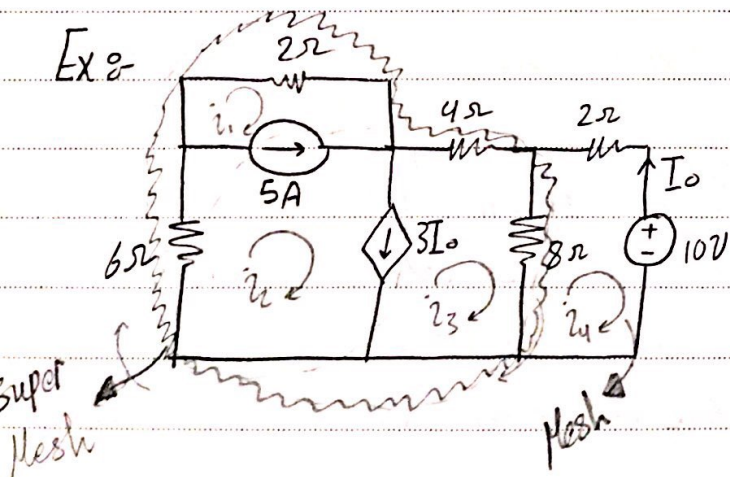 Ex:-
2Ω
i₁
5A
4Ω
2Ω
I₀
6Ω
i₂
3I₀
i₃
8Ω
i₄
+
-
10V
Super
Mesh
Mesh